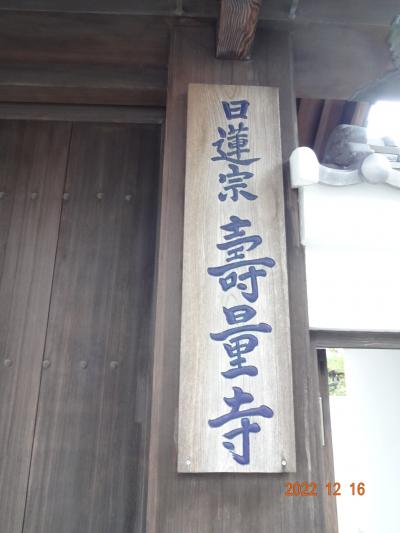 日蓮宗 壽量寺
2022 12 16